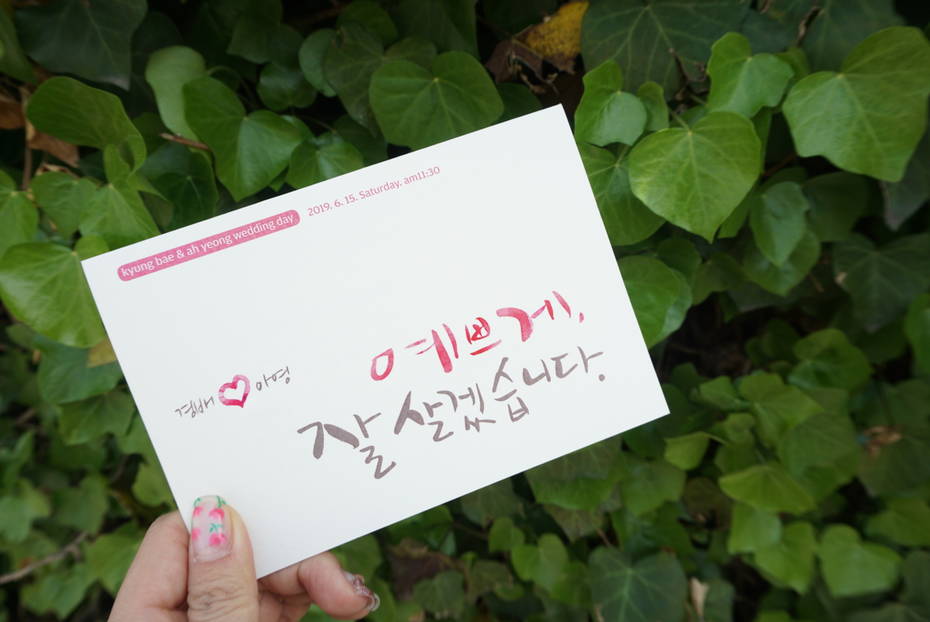 kyung bae & ah yeong wedding day 2019. 6. 15. Saturday. am11:30
예쁘게,
경배 아영
잘 살겠습니다.